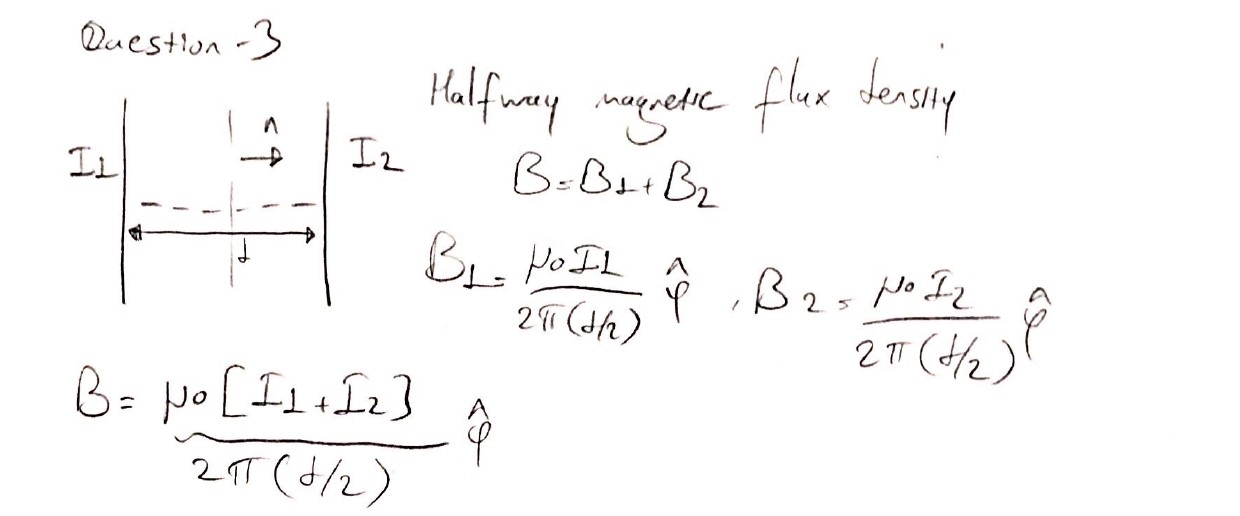 Question -3
Halfway magnetic flux density
I1
n
I2
d
B = B1 + B2
B1 = μ0 I1 / 2π(d/2) φ̂ , B2 = μ0 I2 / 2π(d/2) φ̂
B = μ0 [I1 + I2] / 2π(d/2) φ̂